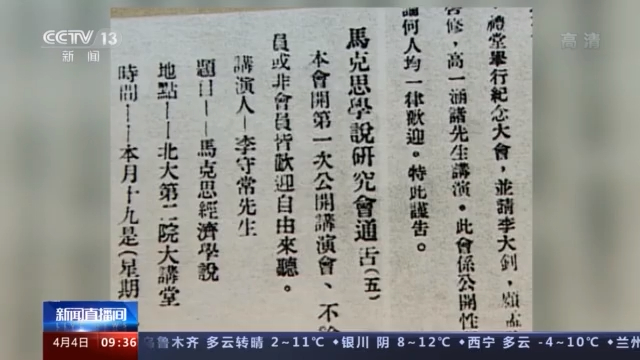 CCTV 13
新闻
高清
禮堂舉行紀念大會，並請李大釗，顧孟
修，高一涵諸先生講演。此會係公開性
論何人均一律歡迎。特此謹告。
馬克思學說研究會通告(五)
本會開第一次公開講演會、不論
員或非會員皆歡迎自由來聽。
講演人—李守常先生
題目——馬克思經濟學說
地點——北大第二院大講堂
時間——本月十九是(星期
新闻直播间
4月4日 09:36 乌鲁木齐 多云转晴 2~11℃ •银川 阴 8~12℃ •西宁 多云 -4~10℃ •兰州